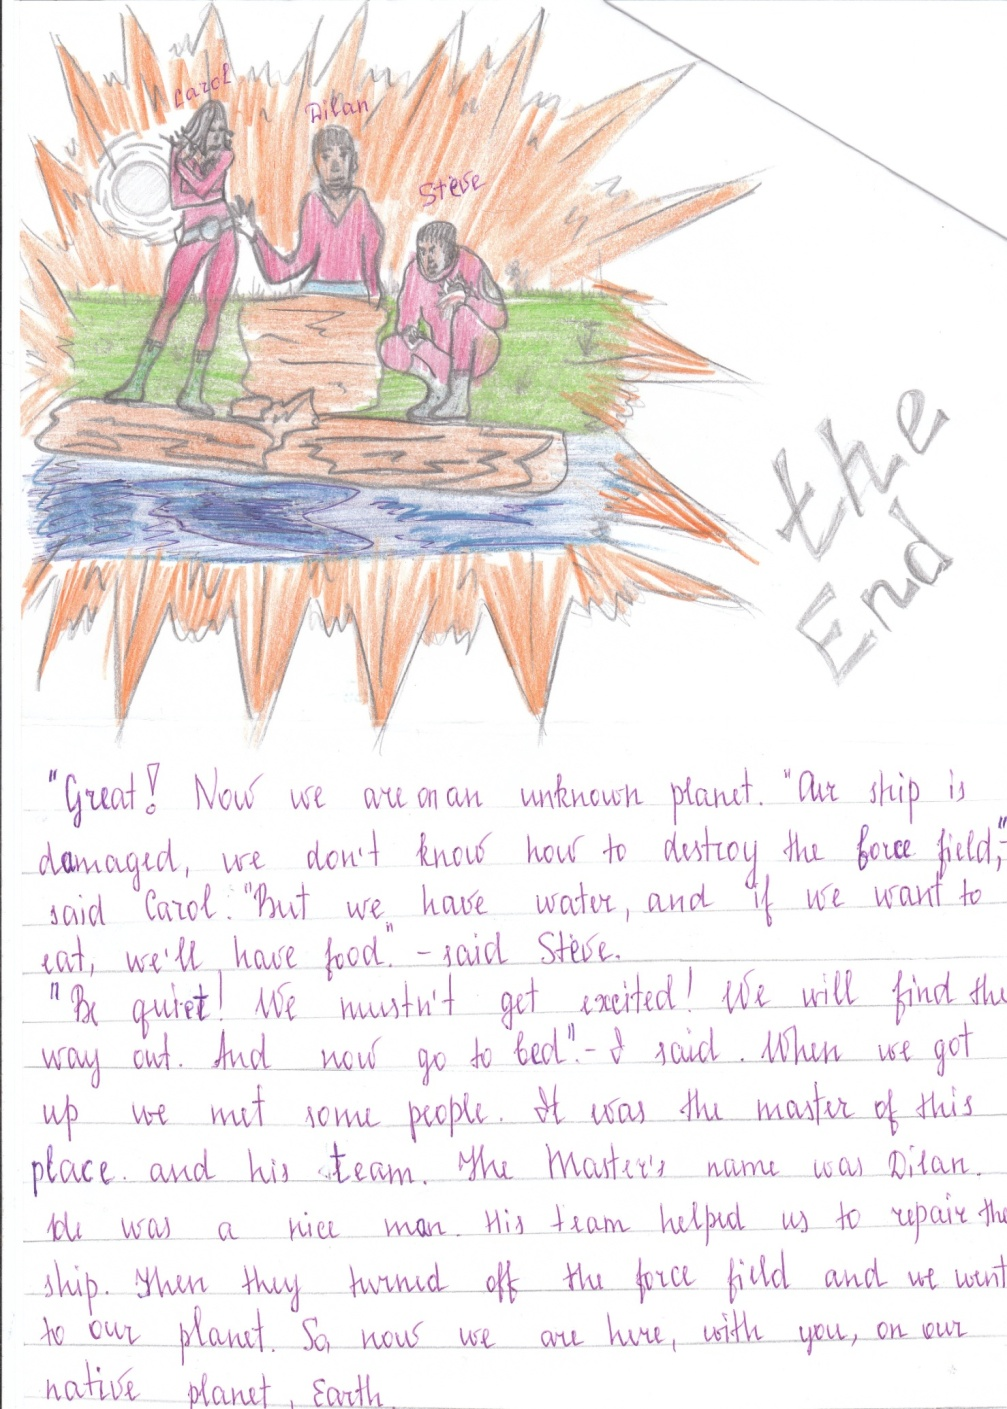 Carol
Dilan
Steve
the
End
"Great! Now we are on an unknown planet. "Our ship is
damaged, we don't know how to destroy the force field,"-
said Carol. "But we have water, and if we want to
eat, we'll have food." - said Steve.
"Be quiet! We mustn't get excited! We will find the
way out. And now go to bed".- I said. When we got
up we met some people. It was the master of this
place. and his team. The Master's name was Dilan.
He was a nice man. His team helped us to repair the
ship. Then they turned off the force field and we went
to our planet. So, now we are here, with you, on our
native planet, Earth.